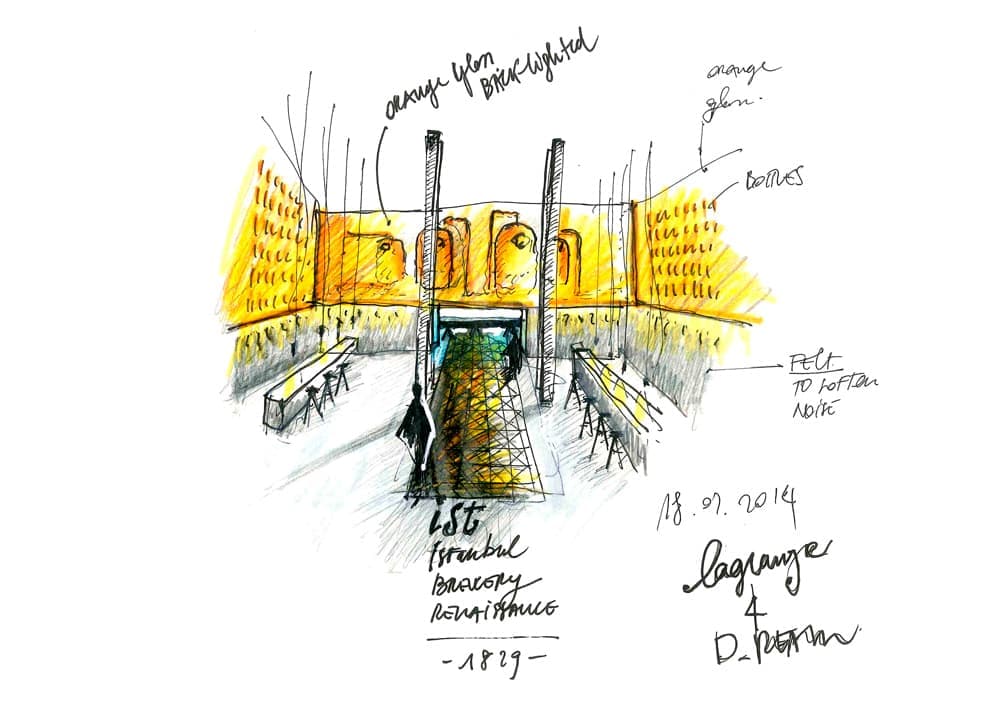 orange glass
BACK-lighted
orange
glass.
BOTTLES
FELT
TO SOFTEN
NOISE
ist
istanbul
BREWERY
RENAISSANCE
- 1829 -
2014
lagrange
4
D.